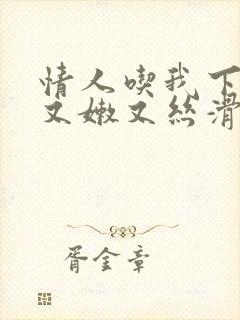 情人喫我下
又嫩又丝滑
胥金章